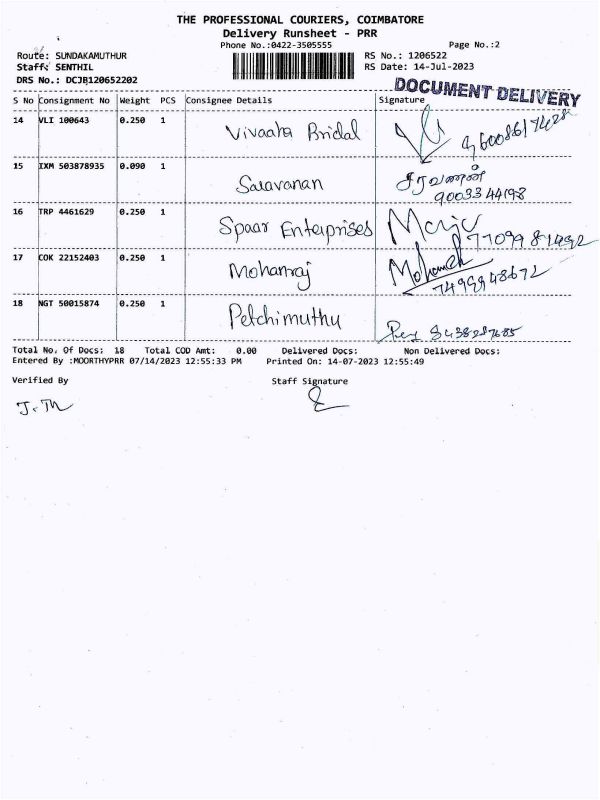 THE PROFESSIONAL COURIERS, COIMBATORE
Delivery Runsheet - PRR
Phone No.:0422-3505555 Page No.:2
Route: SUNDAKAMUTHUR RS No.: 1206522
Staff: SENTHIL RS Date: 14-Jul-2023
DRS No.: DCJB120652202
DOCUMENT DELIVERY
S No Consignment No Weight PCS Consignee Details Signature
14 VLI 100643 0.250 1 Vivaaha Bridal
15 IXM 503878935 0.090 1 Saravanan சரவணன்
9003344198
16 TRP 4461629 0.250 1 Spaar Enterprises
17 COK 22152403 0.250 1 Mohanraj
18 NGT 50015874 0.250 1 Petchimuthu
Total No. Of Docs: 18 Total COD Amt: 0.00 Delivered Docs: Non Delivered Docs:
Entered By :MOORTHYPRR 07/14/2023 12:55:33 PM Printed On: 14-07-2023 12:55:49
Verified By Staff Signature